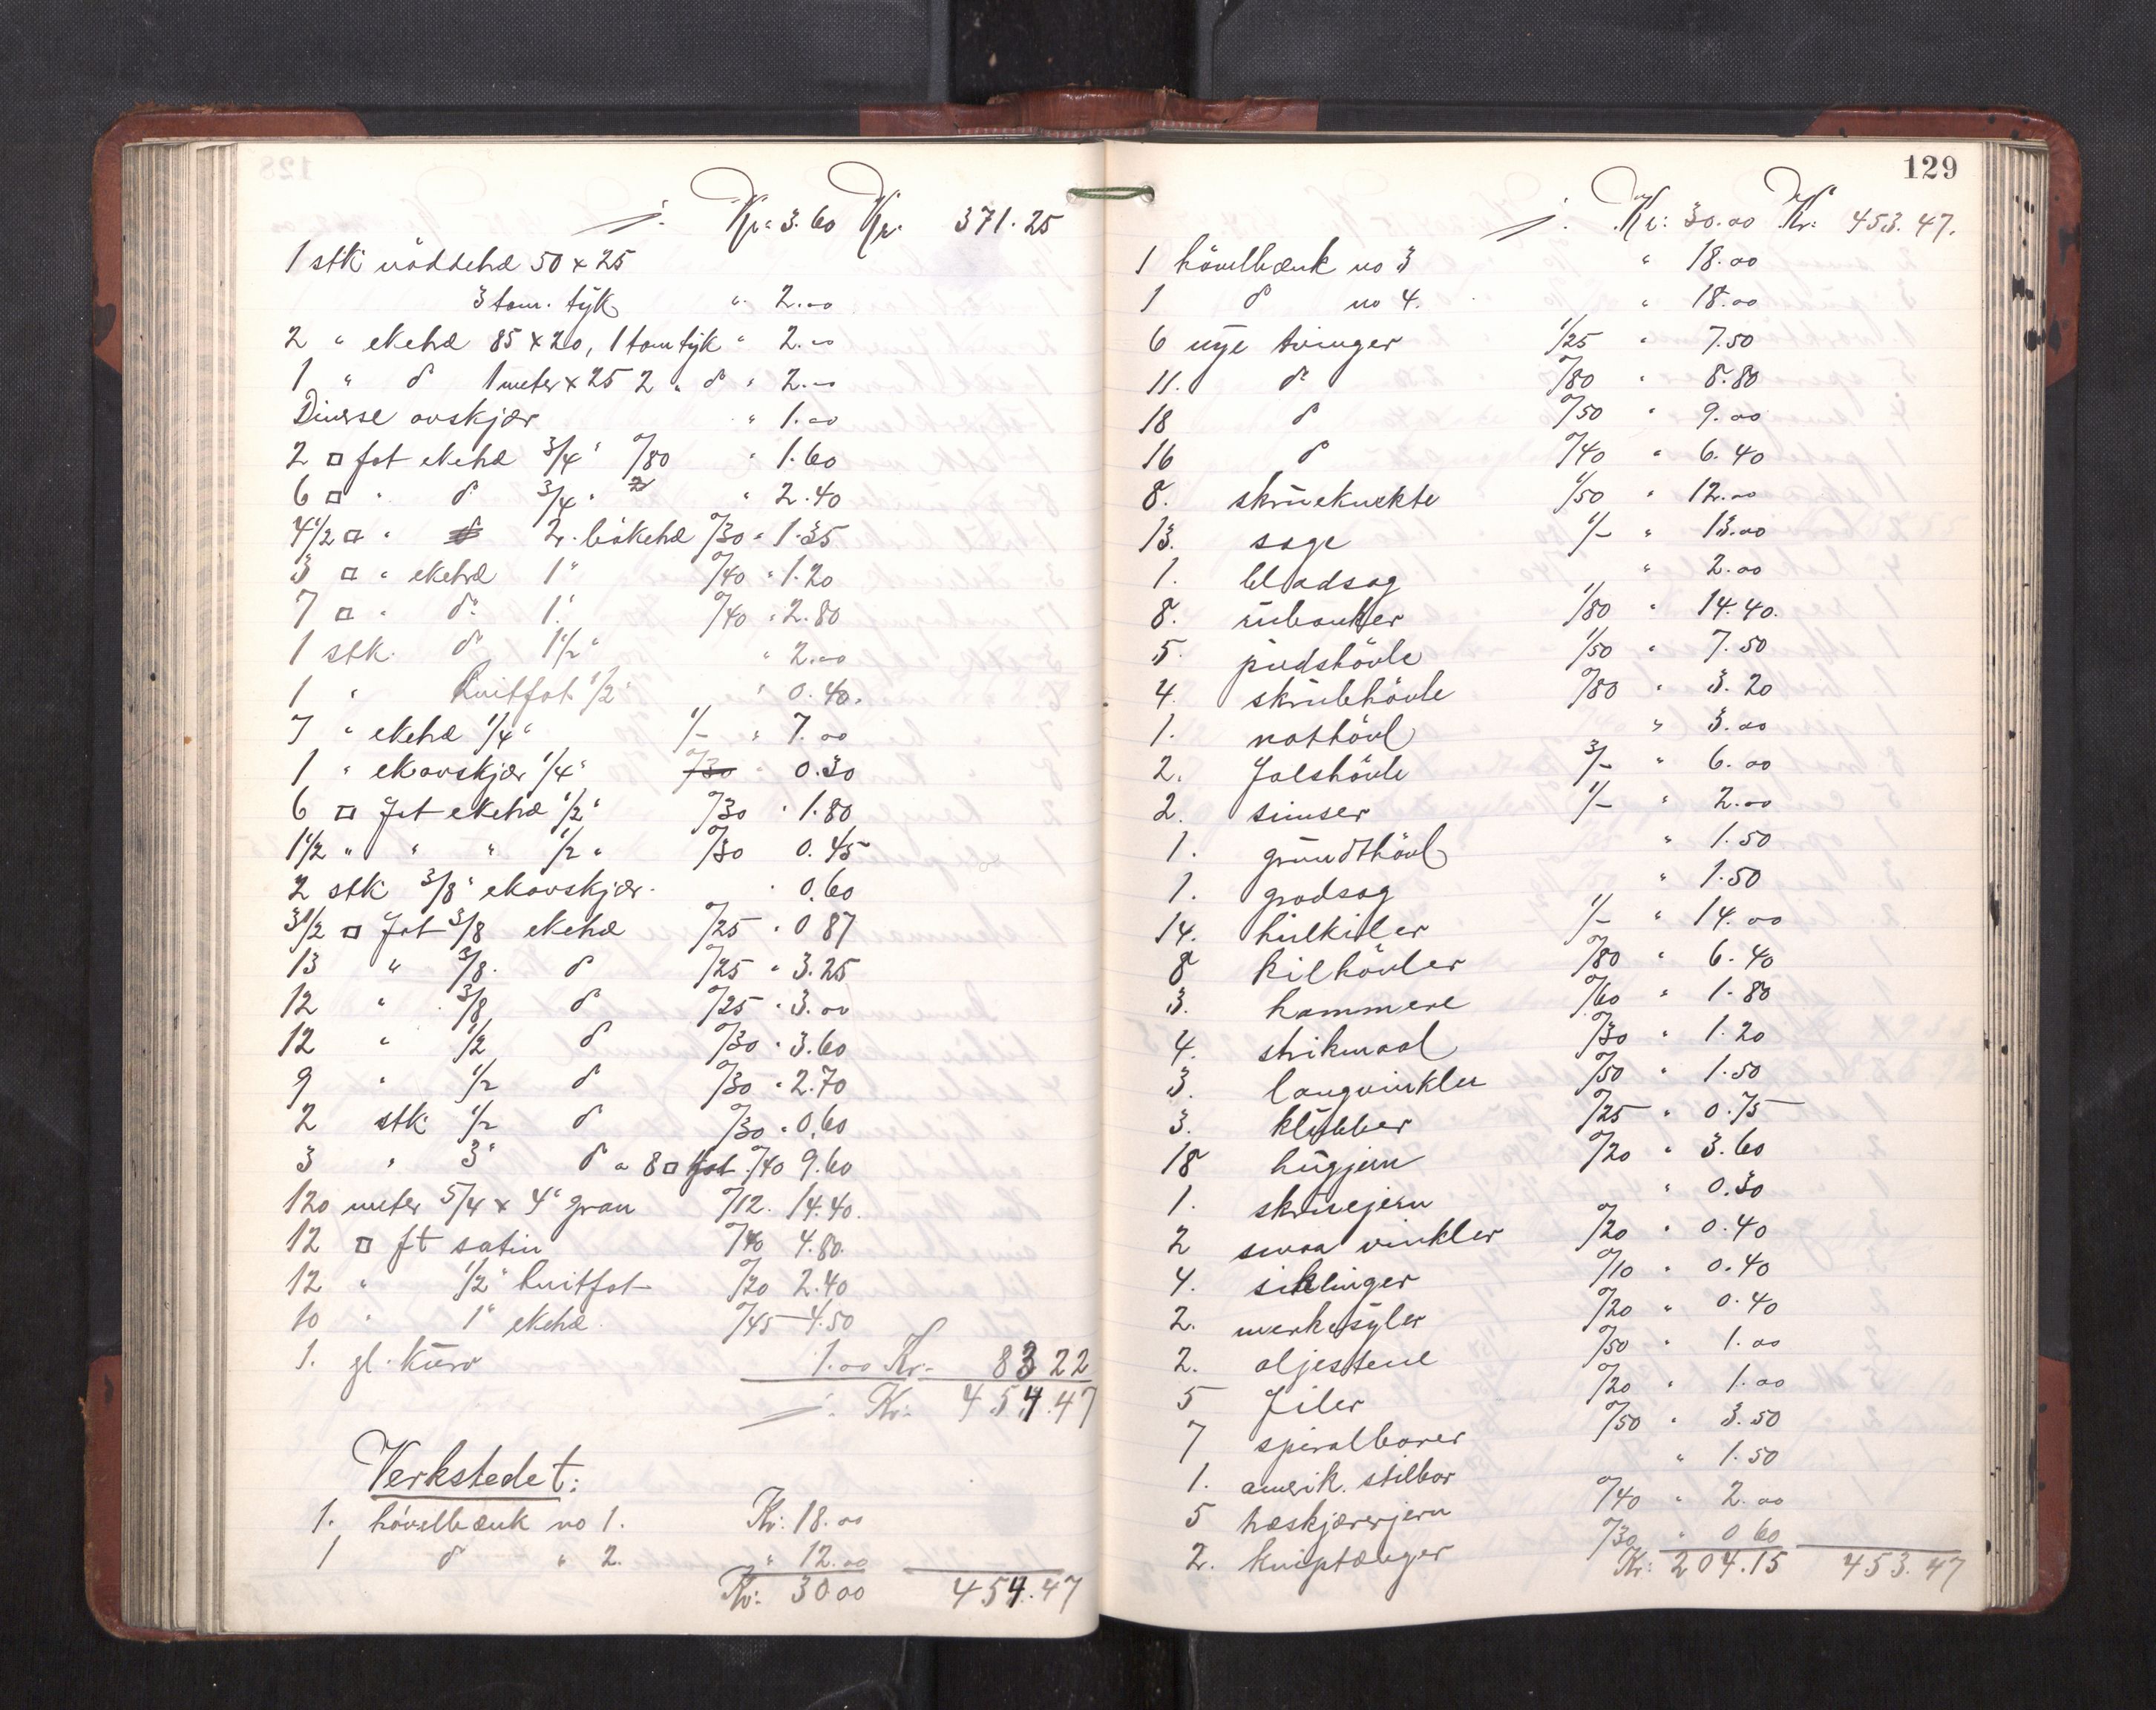 ./. Kr: 3.60 Kr. 371.25
1 stk nöddetræ 50 x 25
3 tom. tyk " 2.00
2 " eketræ 85 x 20, 1 tom tyk " 2.00
1 " do 1 meter x 25 2 " do " 2.00
Diverse avskjær " 1.00
2 □ fot eketræ 3/4" 0/80 " 1.60
6 □ " do 3/4 " " 2.40
4 1/2 □ " 2. bökетræ 0/30 " 1.35
3 □ " eketræ 1" 0/40 " 1.20
7 □ " do 1" 0/40 " 2.80
1 stk. do 1 1/2" " 2.00
1 " hvitfot 1/2" " 0.40.
7 " eketræ 1/4" 1/- " 7.00
1 " ekavskjær 1/4" 0/30 " 0.30
6 □ fot eketræ 1/2" 0/30 " 1.80
1 1/2 " " " 1/2 " 0/30 0.45
2 stk 3/8" ekavskjær. " 0.60
3 1/2 □ fot 3/8 eketræ 0/25 " 0 87
13 " 3/8. do 0/25 " 3.25
12 " 3/8 do 0/25 " 3.00
12 " 1/2 do 0/30 " 3.60
9 " 1/2 do 0/30 " 2.70
2 stk 1/2 do 0/30 " 0.60
3 " 3" do a 8 □ fot 0/40 9.60
120 meter 5/4 x 4" gran 0/12. 14.40.
12 □ ft satin 0/40 4.80.
12 " 1/2" hvitfot 0/20 2.40
10 " 1" eketræ. 0/45 4.50
1. gl. kurv 1.00 Kr. 83 22
./. Kr. 454.47
Verkstedet:
1. hövelbænk no 1. Kr: 18.00
1 do " 2. " 12.00
Kr: 30 00 454.47
129
./. Kr: 30.00 Kr: 453.47.
1 hövelbænk no 3 " 18.00
1 do no 4. " 18.00
6 nye tvinger 1/25 " 7.50
11. do 0/80 " 8.80
18 do 0/50 " 9.00
16 do 0/40 " 6.40
8. skrueknekte 1/50 " 12.00
13. sage 1/- " 13.00
1. bladsag " 2.00
8. rubanker 1/80 " 14.40.
5. pudshövle 1/50 " 7.50
4. skrubhövle 0/80 " 3.20
1. nothövl " 3.00
2. falshövle 3/- " 6.00
2. simser 1/- " 2.00
1. grundthövl " 1.50
1. gradsag " 1.50
14. hulkiler 1/- " 14.00
8 kilhövler 0/80 " 6.40
3. hammere 0/60 " 1.80
4. strikmaal 0/30 " 1.20
3. langvinkler 0/50 " 1.50
3. klubber 0/25 " 0.75
18 hugjern 0/20 " 3.60
1. skruejern " 0.30
2 smaa vinkler 0/20 " 0.40
4. siklinger 0/10 " 0.40
2. merkesyler 0/20 " 0.40
2. oljestene 0/50 " 1.00
5 filer 0/20 " 1.00
7 spiralborer 0/50 " 3.50
1. amerik. stilbor " 1.50
5 træskjærerjern 0/40 " 2.00
2. kniptænger 0/30 " 0 60
Kr: 204.15 453.47